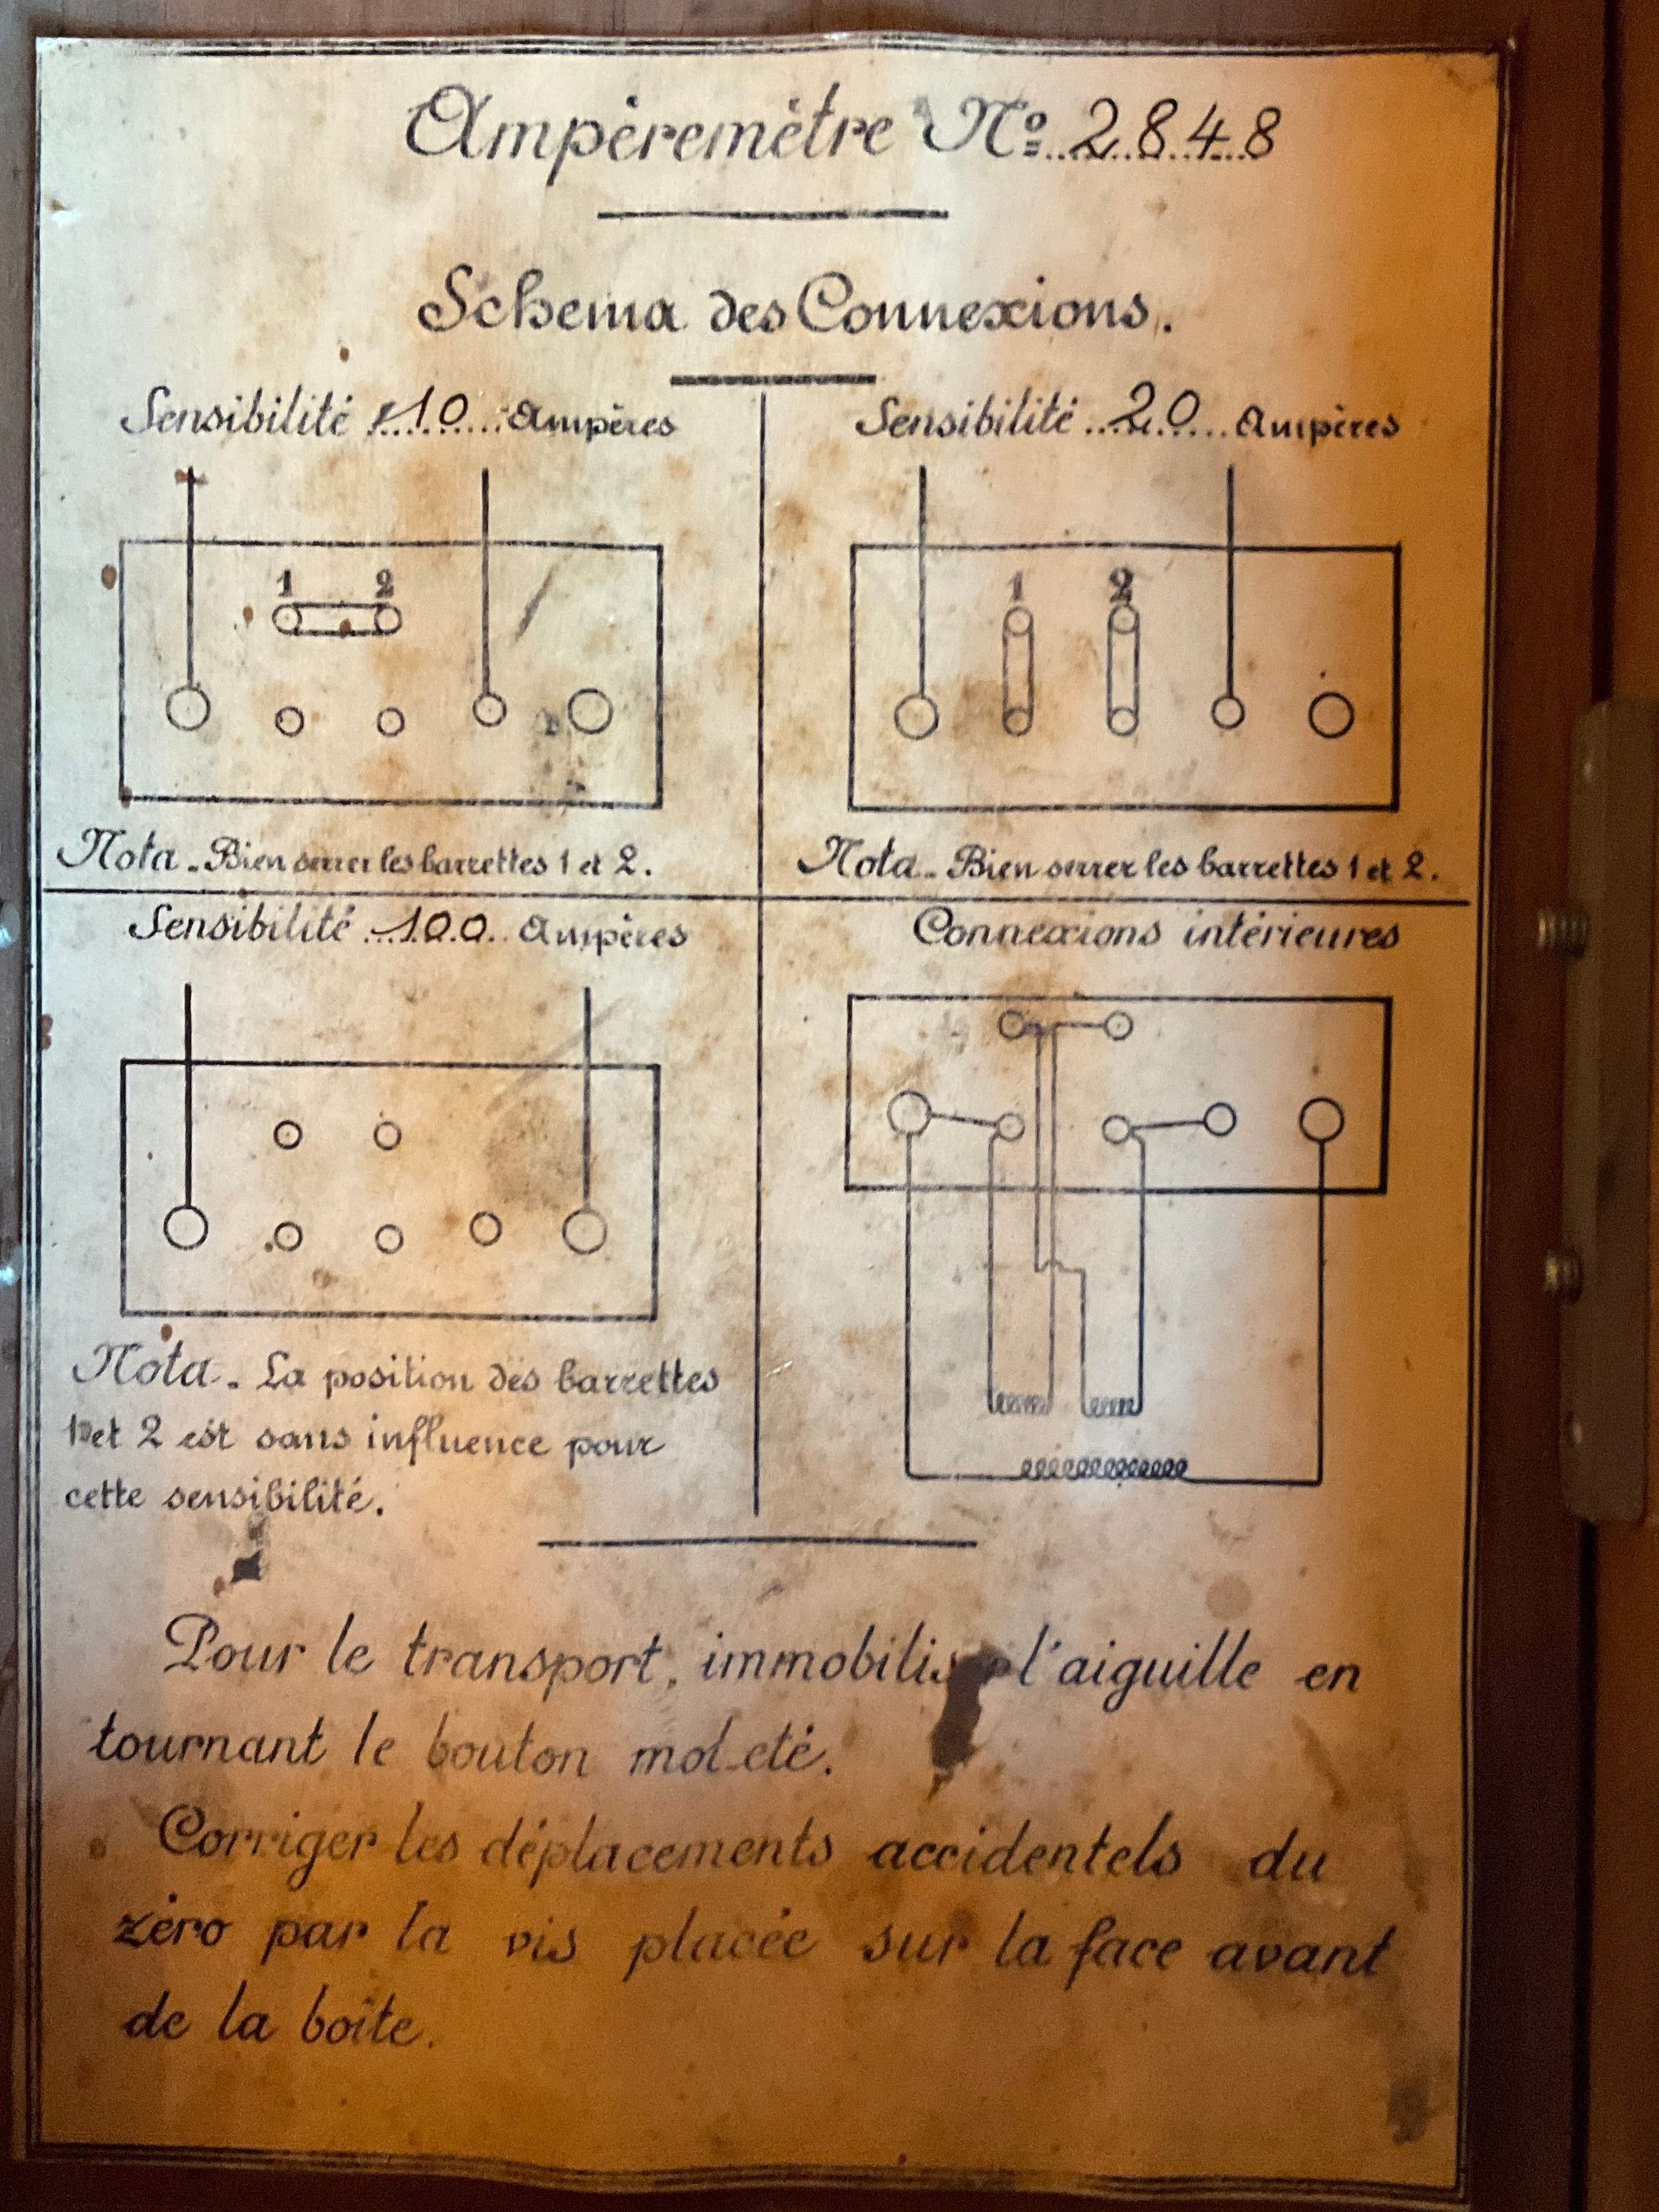 Ampèremètre Nº 2848
Schema des Connexions.
Sensibilité 10 Ampères
1 2
Nota - Bien serrer les barrettes 1 et 2.
Sensibilité 20 Ampères
1 2
Nota - Bien serrer les barrettes 1 et 2.
Sensibilité 100 Ampères
Nota - La position des barrettes
1 et 2 est sans influence pour
cette sensibilité.
Connexions intérieures
Pour le transport, immobiliser l'aiguille en
tournant le bouton moleté.
Corriger les déplacements accidentels du
zéro par la vis placée sur la face avant
de la boîte.